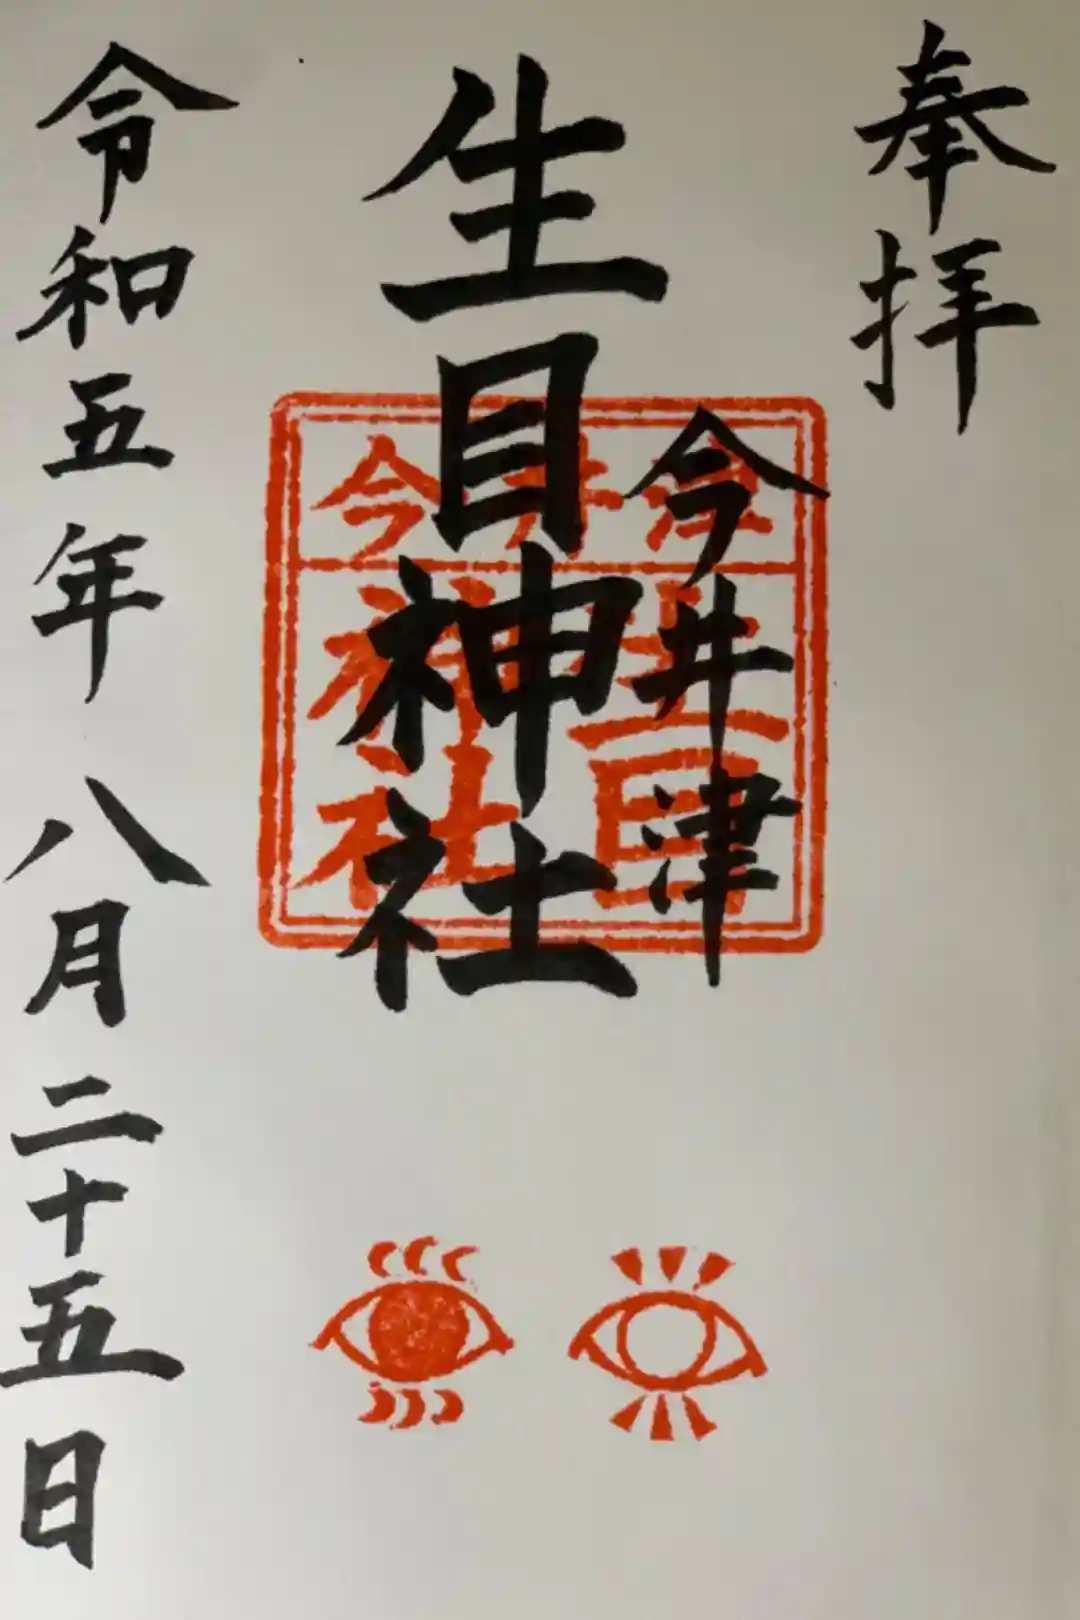 奉拝
今井津
生目神社
令和五年八月二十五日
今井津
生目
神社